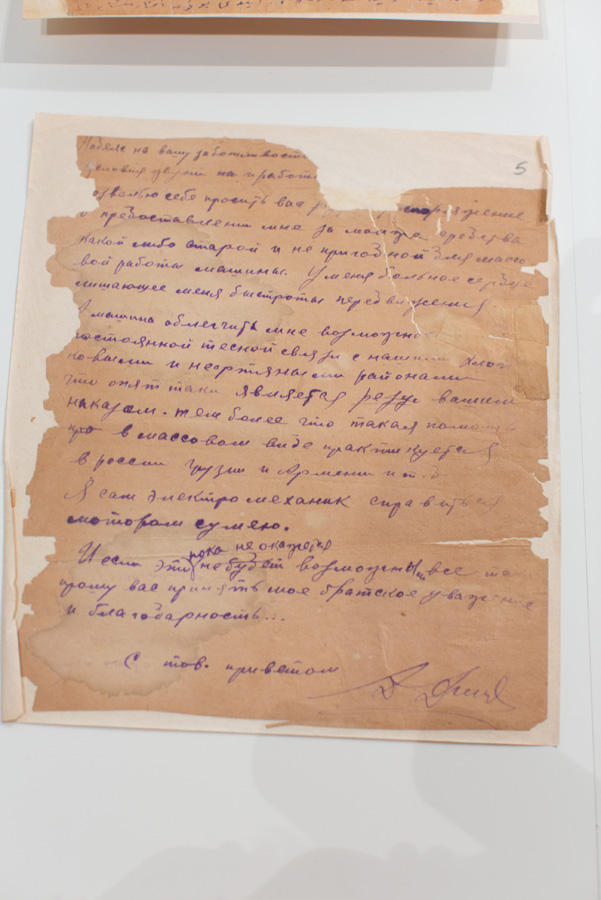 5
Надеясь на вашу заботливость
условия увязки на и работы
озволю себе просить вас распоряжение
о предоставлении мне за мои же средства
какой либо старой и не пригодной для массо
вой работы машины. У меня больное сердце
лишающее меня быстроты передвижения.
А машина облегчить мне возможно
постоянной тесной связи с нашими хлоп
ковыми и нефтяными районами
что опят таки является вашим
наказом. тем более что такая помощ
в массовом виде практикуется
в россии грузии и Армении и т.д
Я сам электро механик справиться
мотором сумею.
пока не окажется
И если это не будет возможным все та
прошу вас принять мое братское уважение
и благодарность...
С тов. приветом